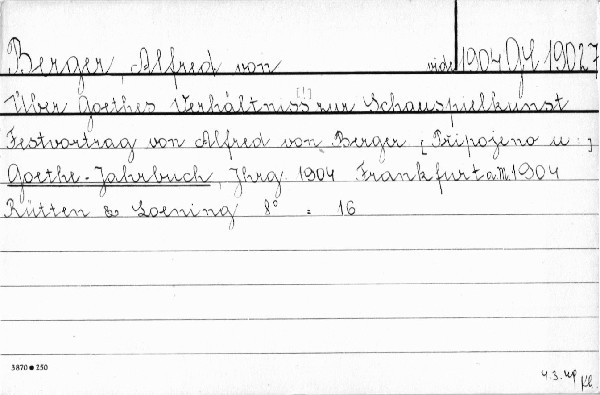 Berger, Alfred von vide 1904 GJ 19027
Über Goethes Verhältniss [!] zur Schauspielkunst
Festvortrag von Alfred von Berger. [Připojeno u:]
Goethe-Jahrbuch, Jhrg. 1904 Frankfurt a.M. 1904
Rütten & Loening 8° = 16
3870 ● 250
4.3.